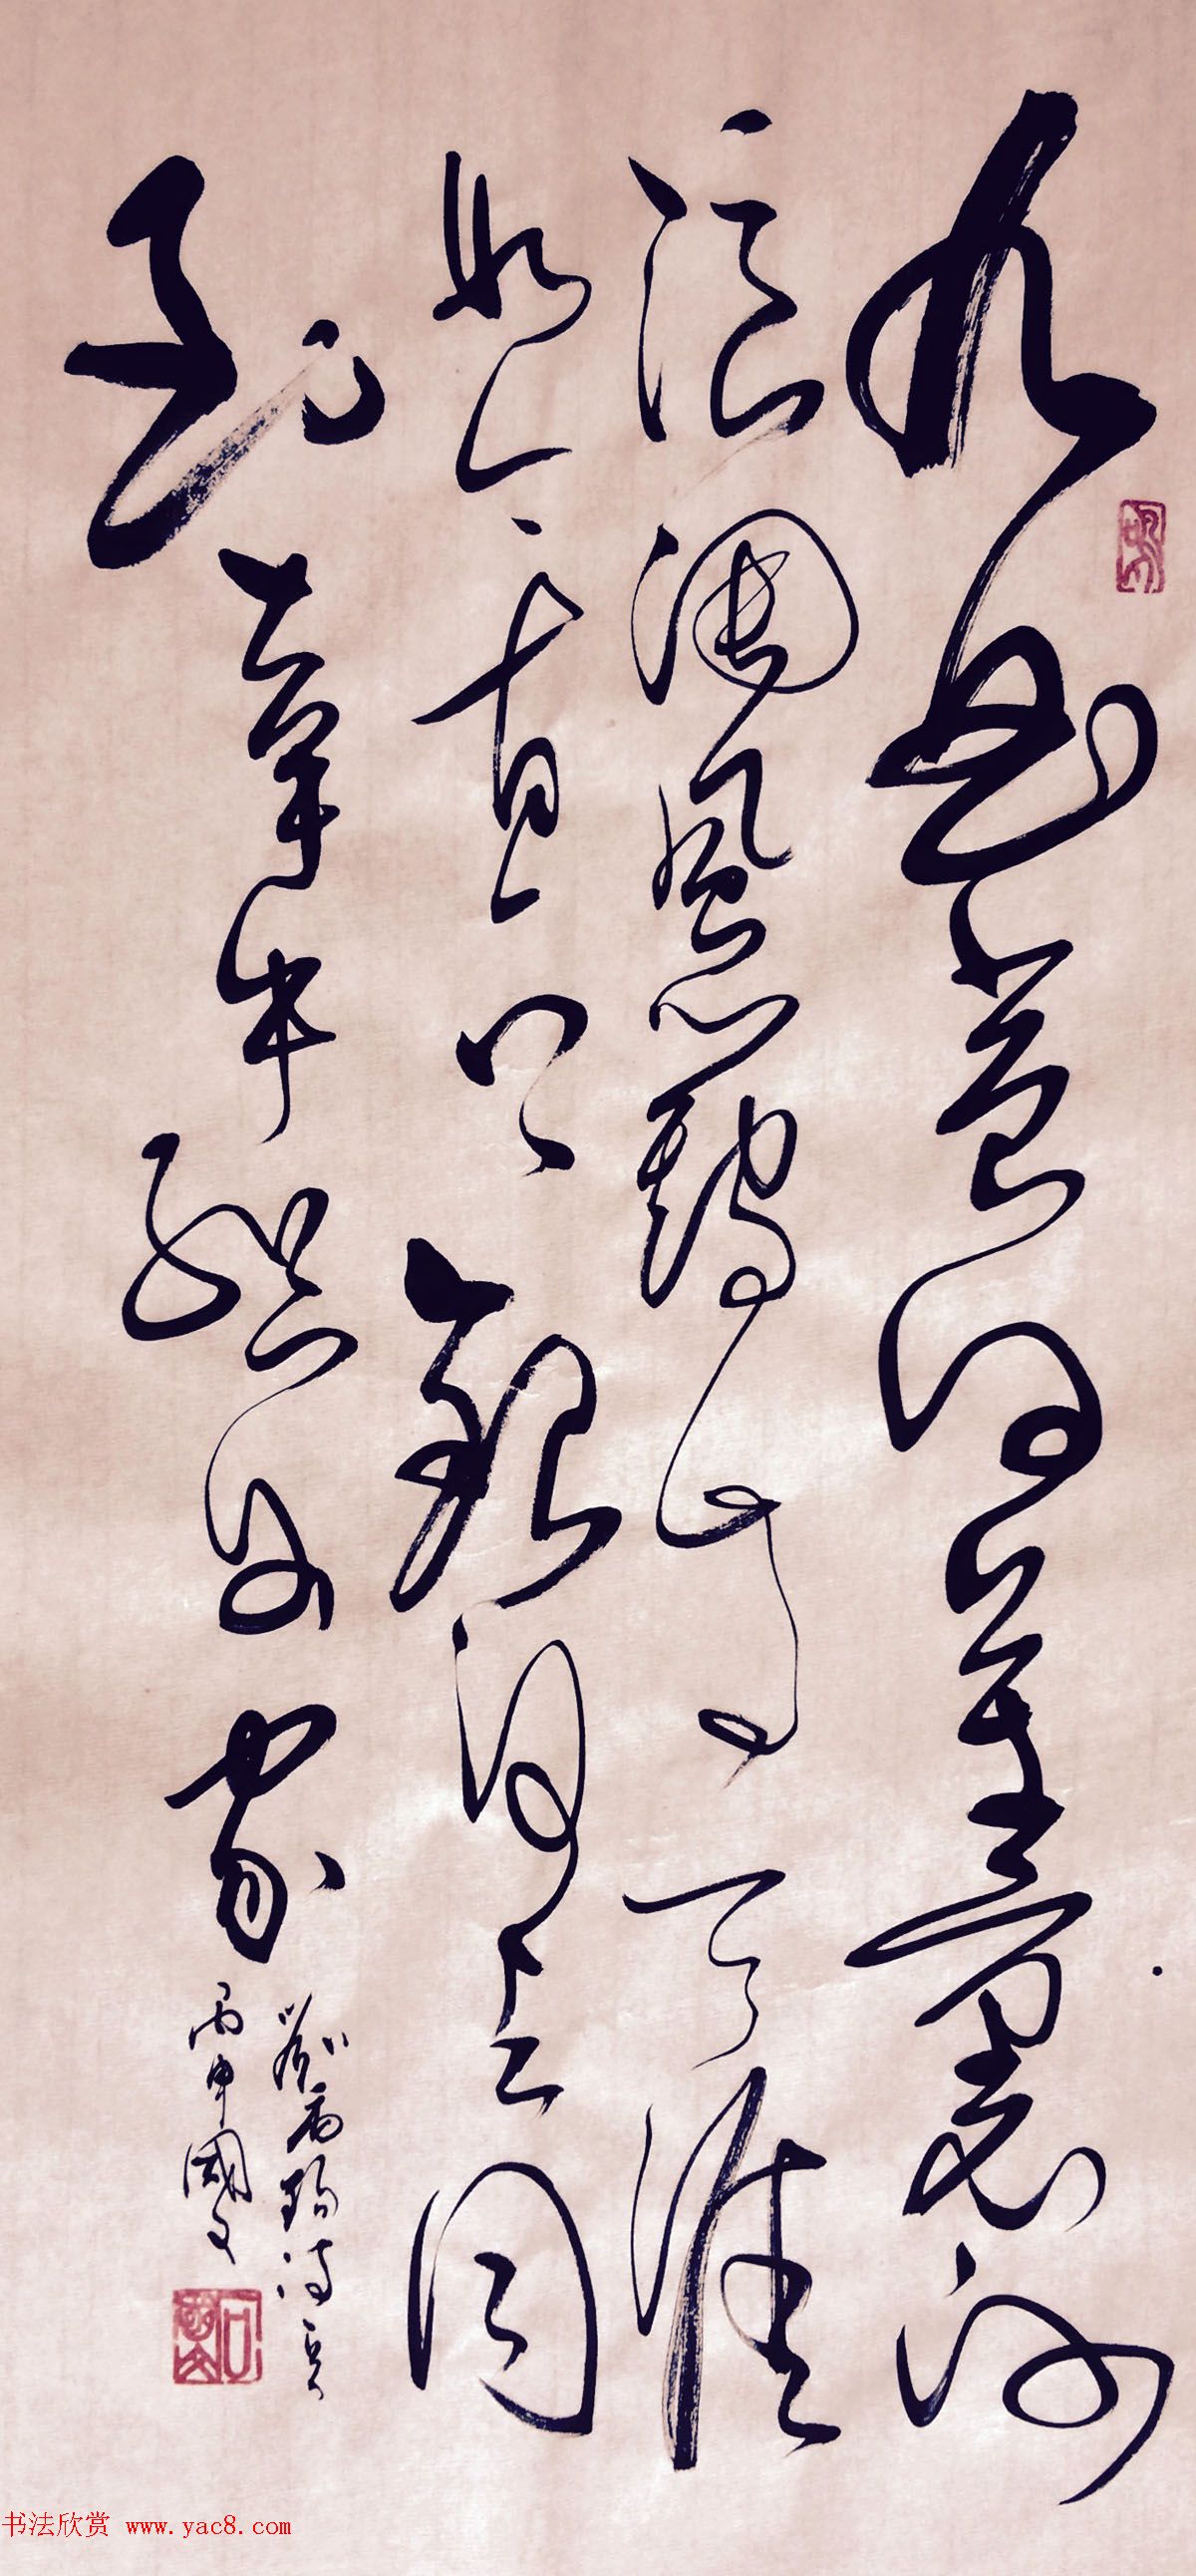 九曲黄河万里沙
浪淘风簸自天涯
如今直上银河去同
到牵牛织女家
刘禹锡诗一首
丙申国文
书法欣赏 www.yac8.com